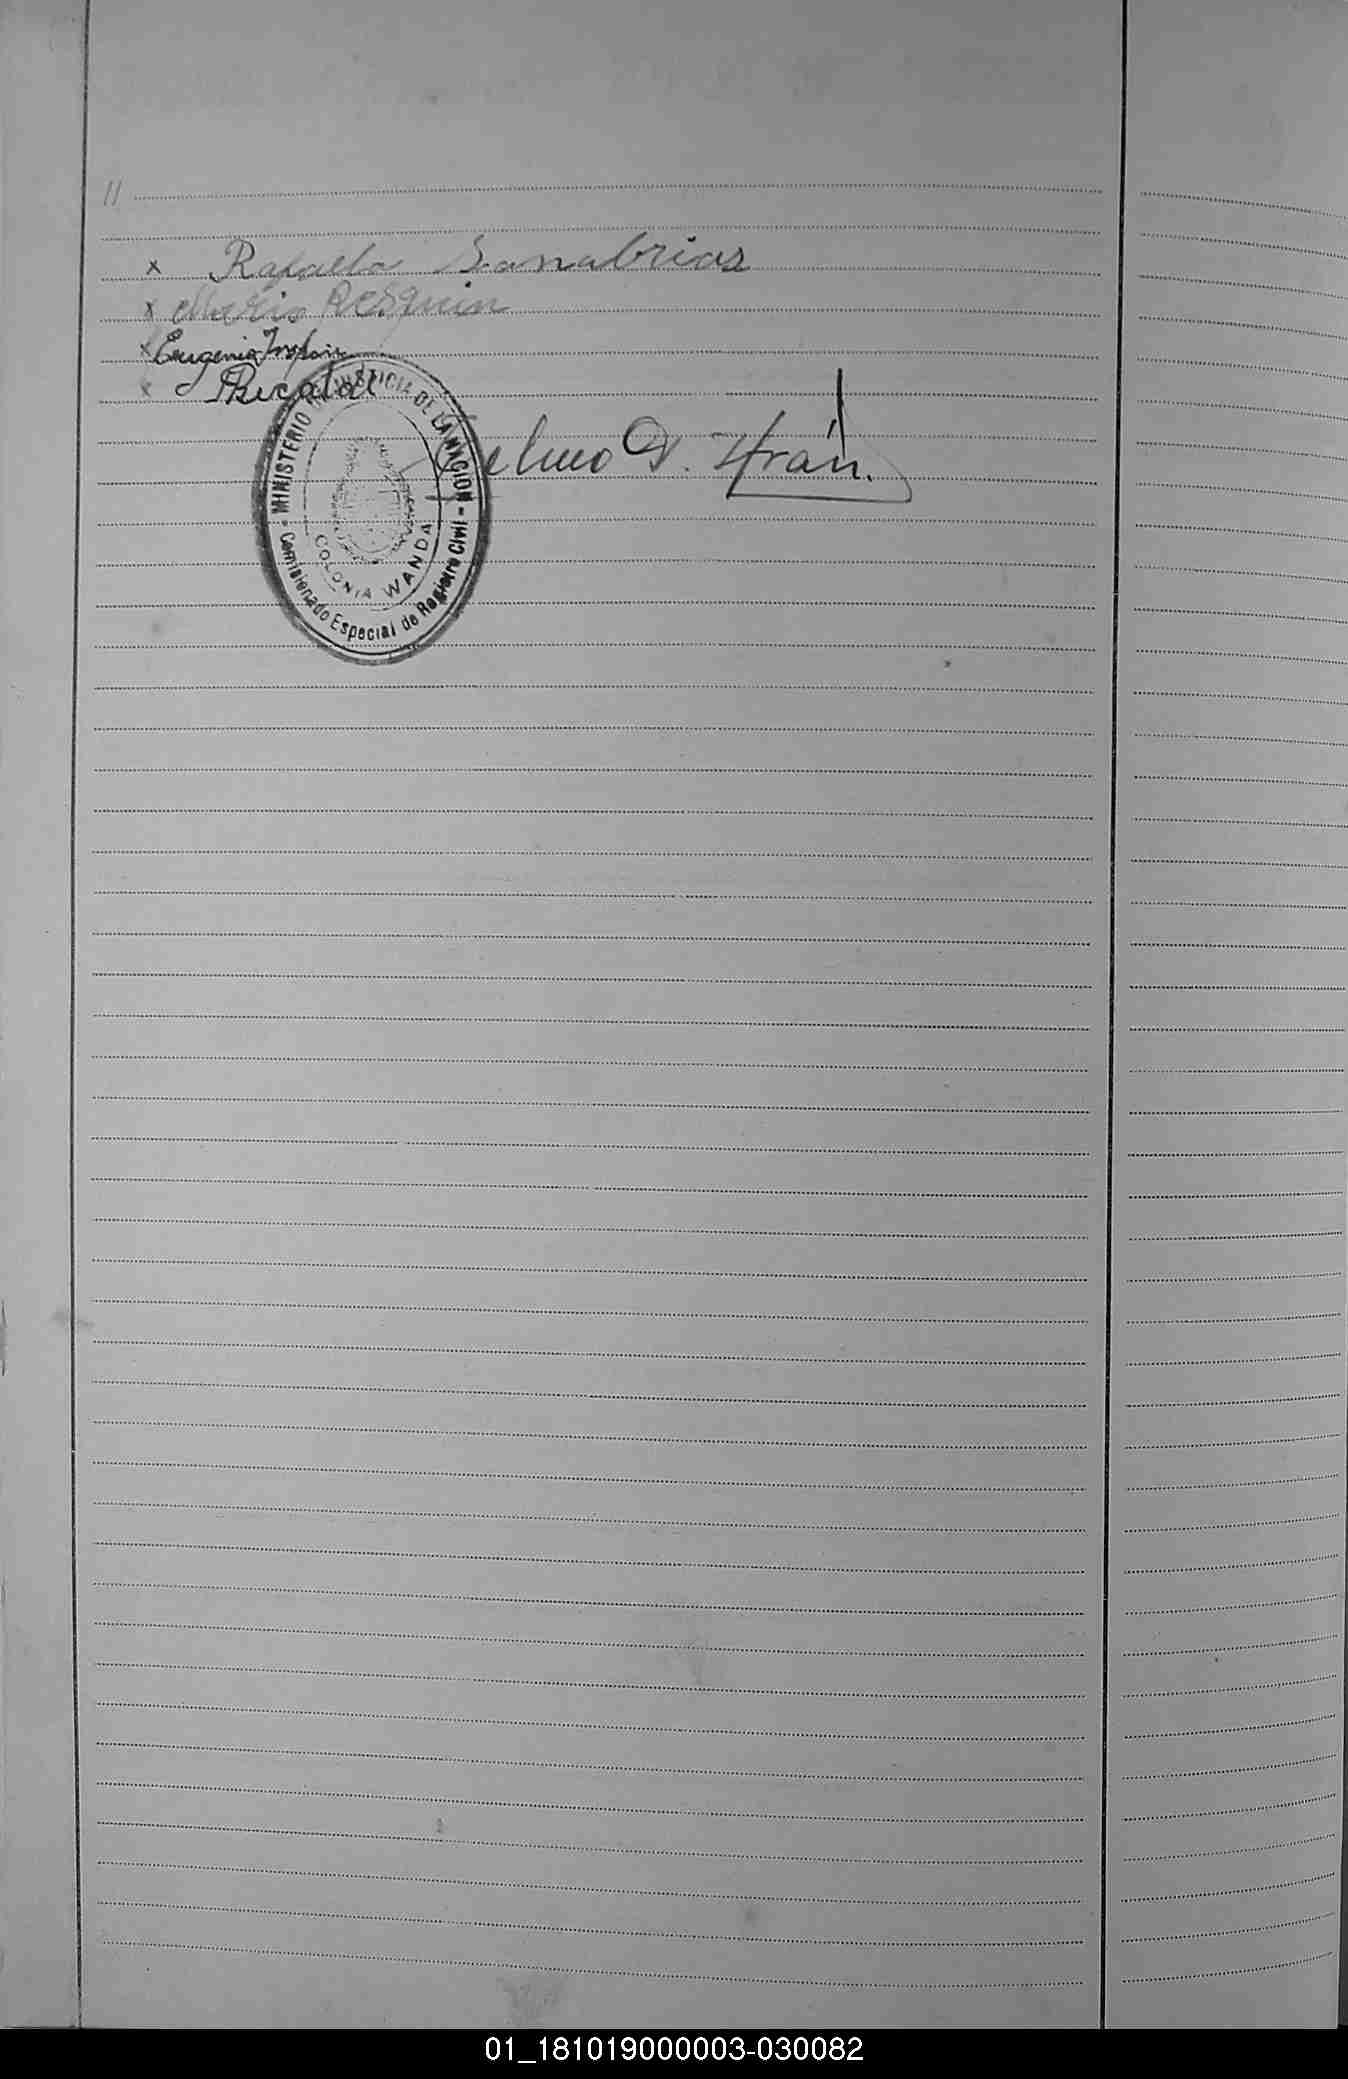 11
x Rafaella Sanabrias
x Mario Resquin
x Eugenia
x
D. Iran.
- MINISTERIO DE JUSTICIA DE LA NACION -
COLONIA WANDA
Comisionado Especial de Registro Civil
01_181019000003-030082